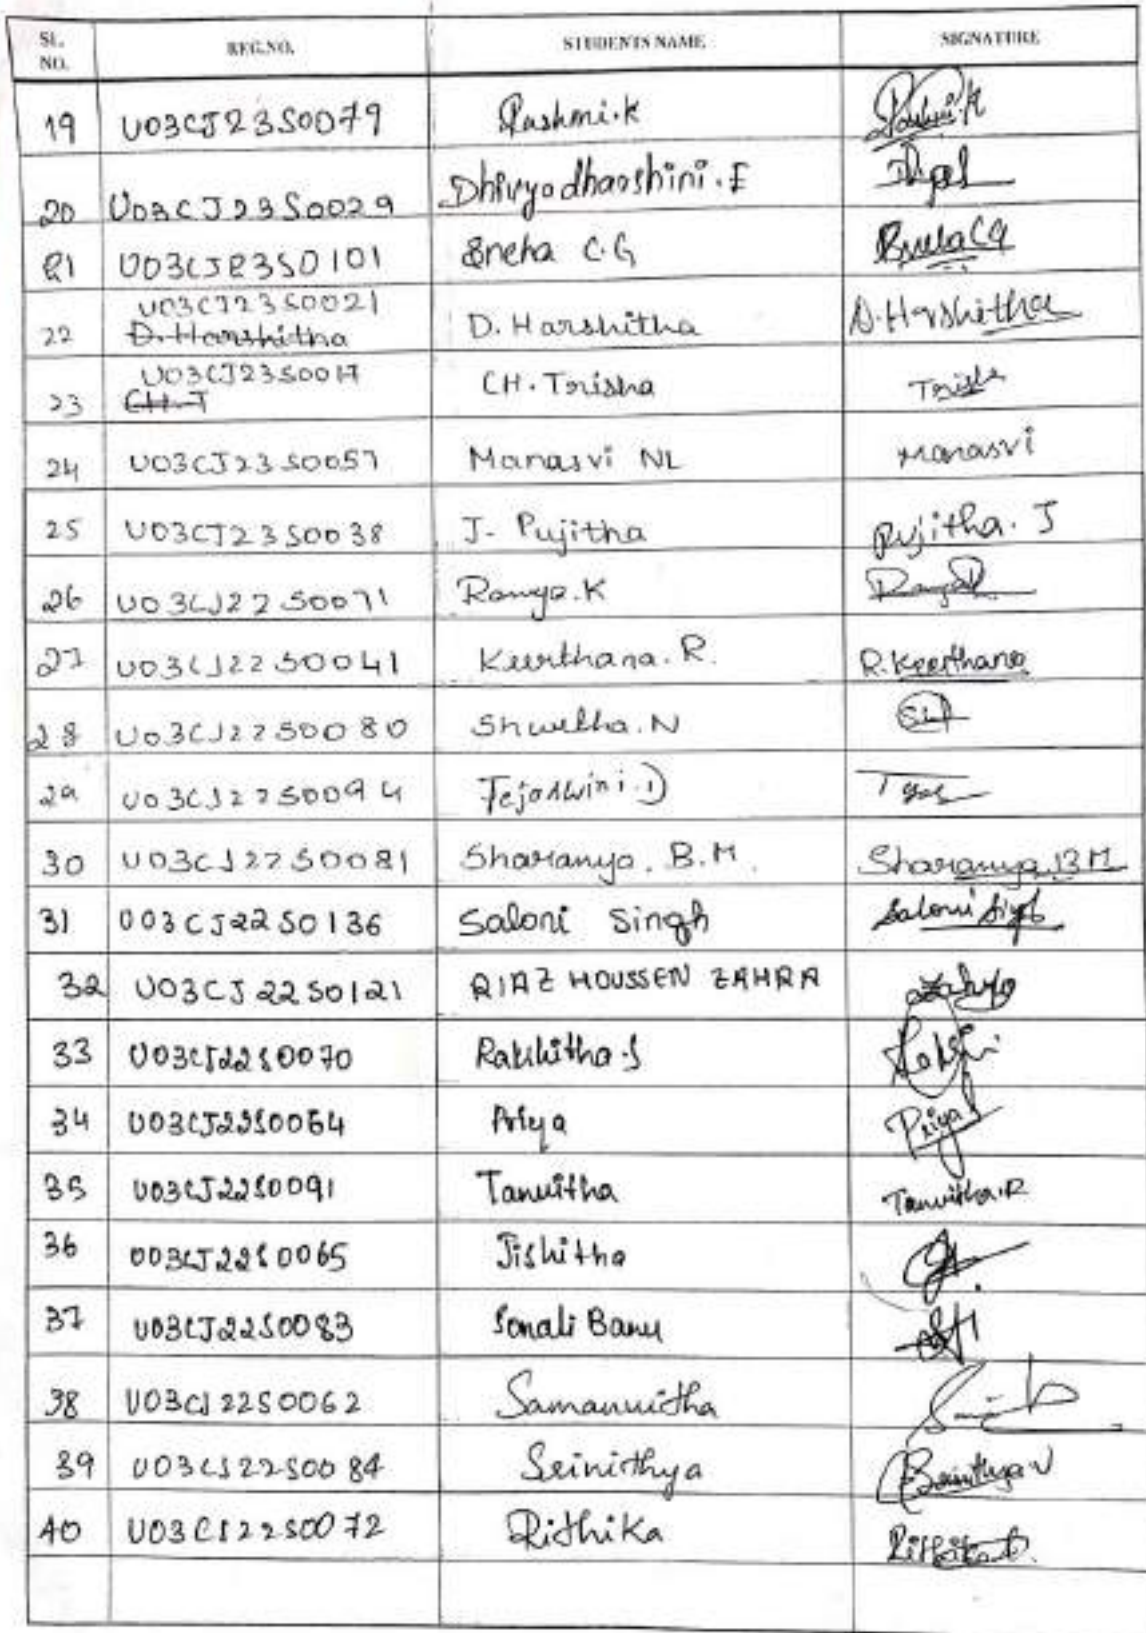 SL. NO. REG.NO. STUDENTS NAME SIGNATURE
19 U03CJ23S0079 Rashmi.K Rashmi.K
20 U03CJ23S0029 Dhivyadharshini.E
21 U03CJ23S0101 Sneha C.G Sneha CG
22 U03CJ23S0021 D. Harshitha D. Harshitha D.Harshitha
23 U03CJ23S0017 CH.T CH. Trisha Trisha
24 U03CJ23S0057 Manasvi NL Manasvi
25 U03CJ23S0038 J. Pujitha Pujitha. J
26 U03CJ22S0071 Ramya.K
27 U03CJ22S0041 Keerthana. R. R.Keerthana
28 U03CJ22S0080 Shwetha.N
29 U03CJ22S0094 Tejaswini.D
30 U03CJ22S0081 Sharanya. B.M. Sharanya.BM
31 U03CJ22S0136 Saloni Singh Saloni Singh
32 U03CJ22S0121 RIAZ HOUSSEN ZAHRA Zahra
33 U03CJ22S0070 Rakshitha.S
34 U03CJ22S0064 Priya Priya
35 U03CJ22S0091 Tanvitha Tanvitha.R
36 U03CJ22S0065 Jishitha
37 U03CJ22S0083 Sonali Banu
38 U03CJ22S0062 Samanvitha
39 U03CJ22S0084 Srinithya Srinithya V
40 U03CJ22S0072 Rithika